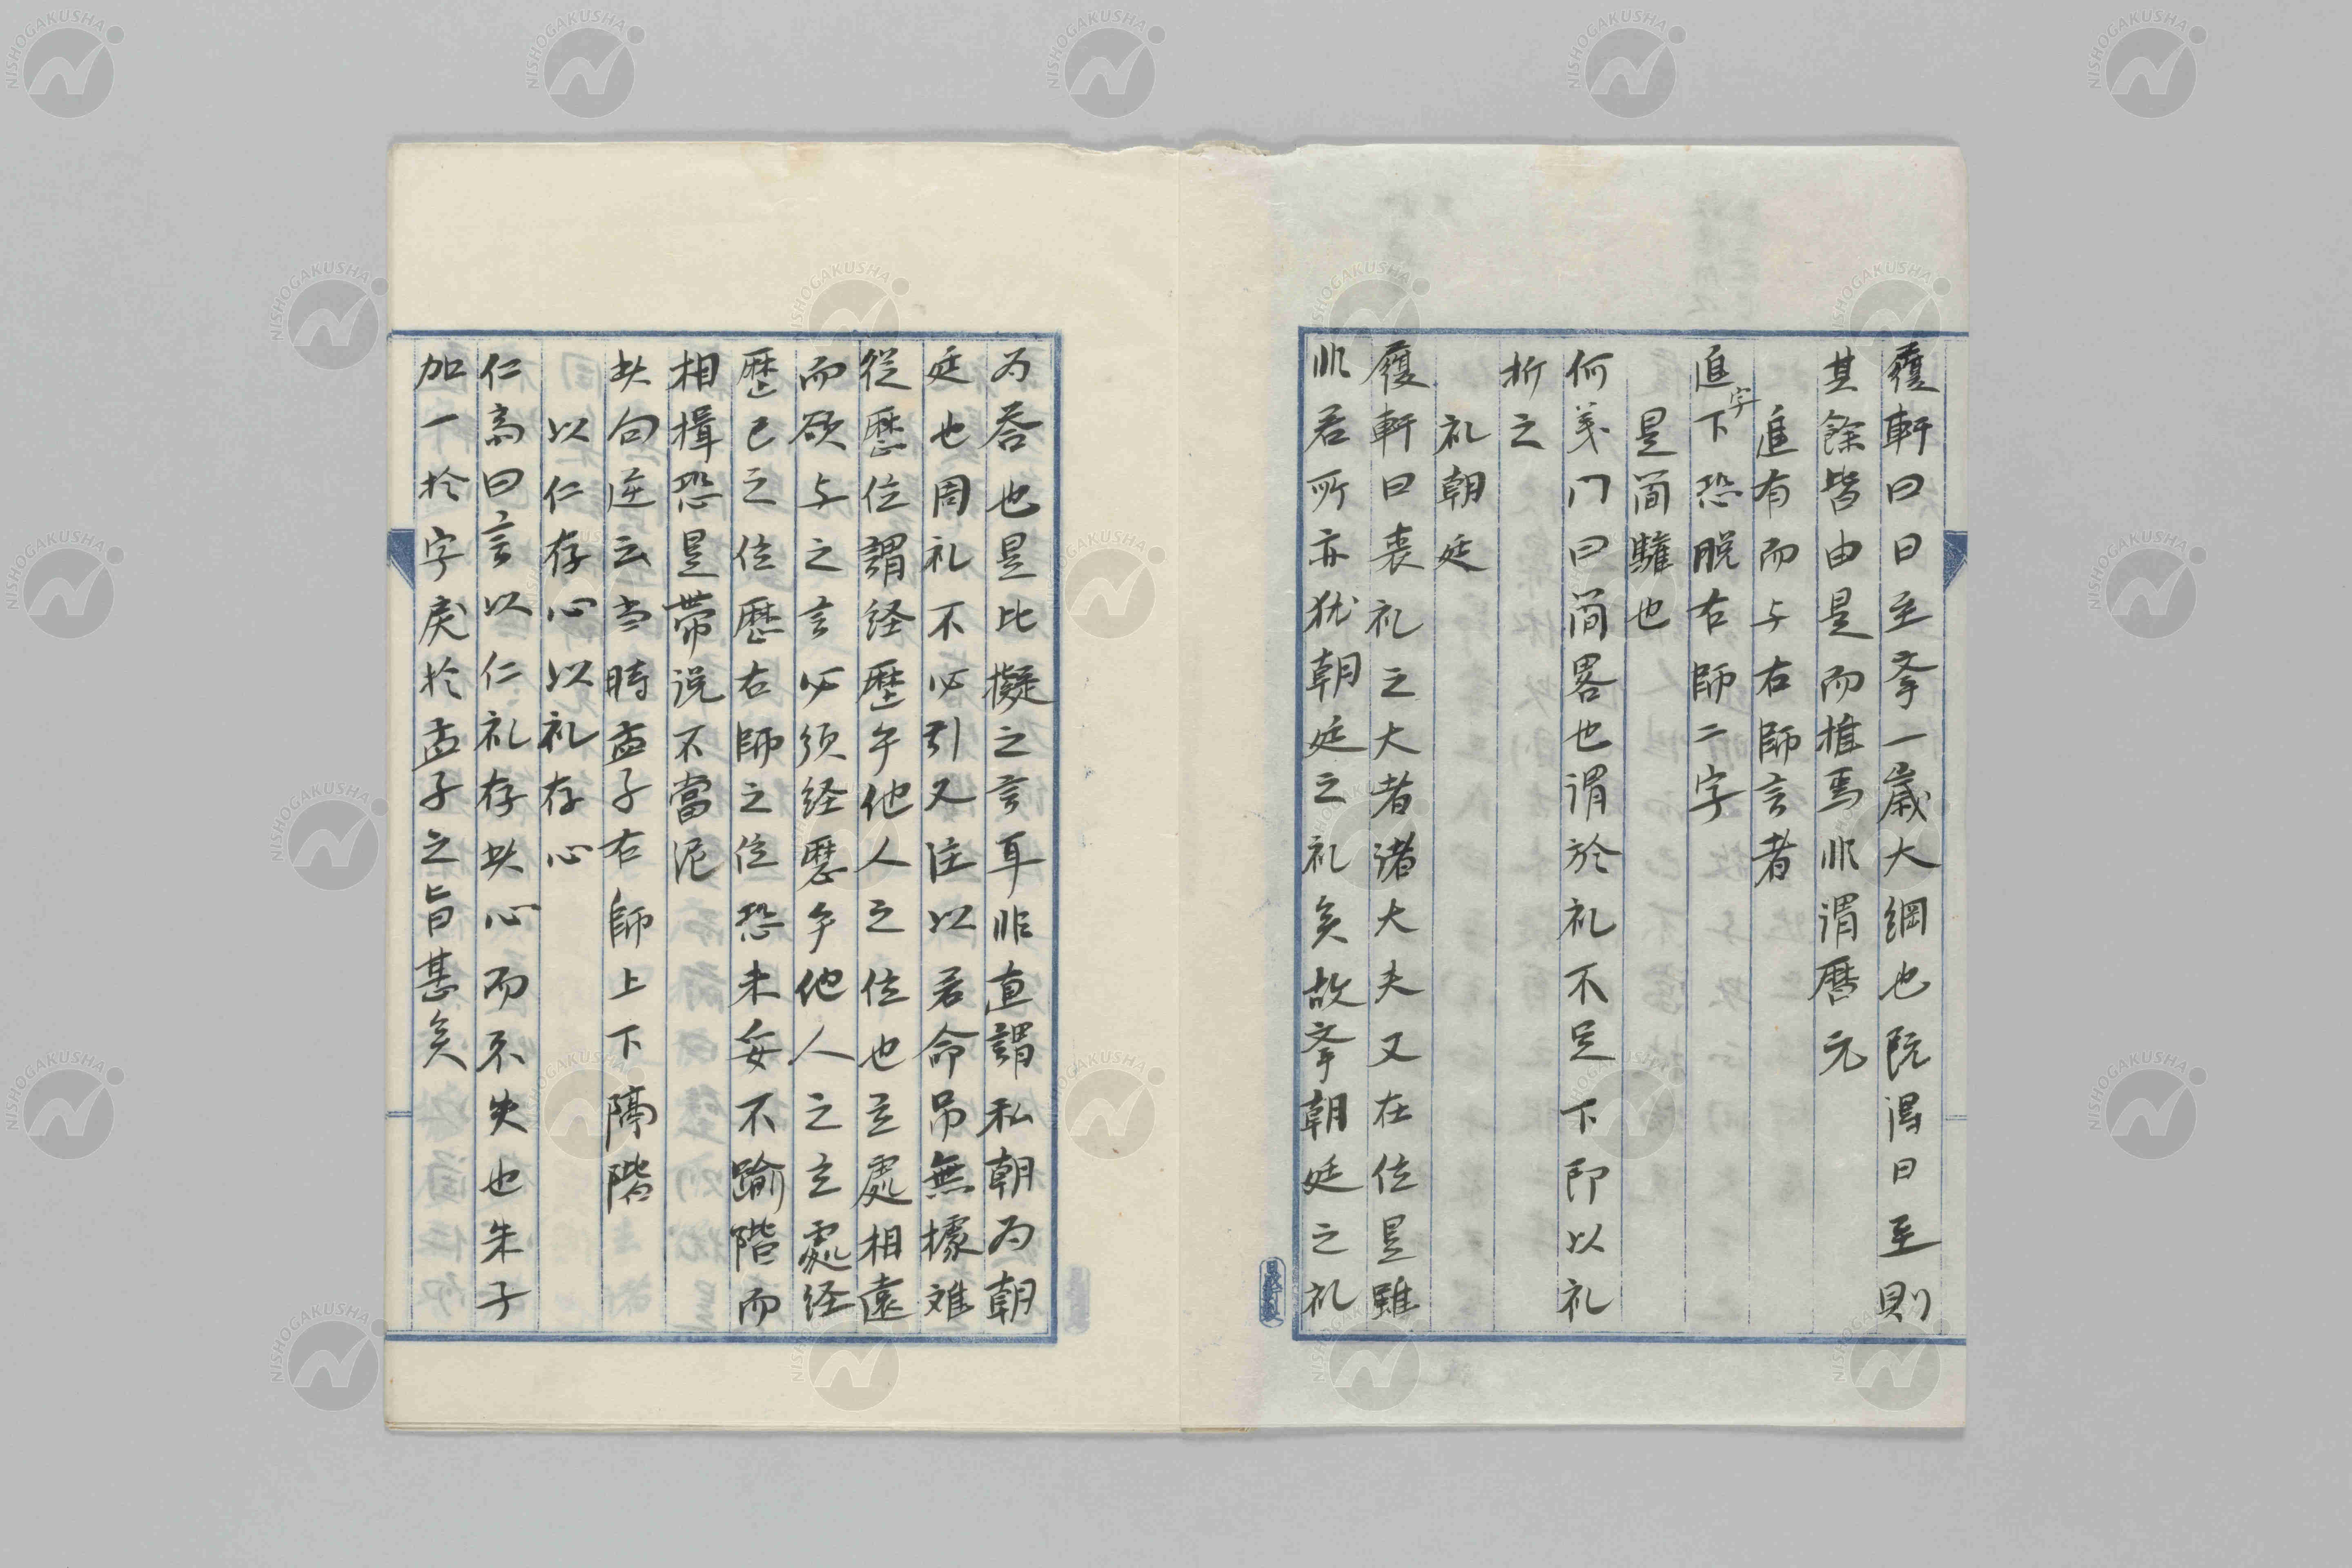 履軒曰日至夆一歳大綱也既得日至則
其餘皆由是而推焉非謂曆元
進有而与右師言者
進字下恐脱右師二字
是簡驩也
何義门曰简畧也謂於礼不足下即以礼
折之
礼朝廷
履軒曰喪礼之大者诸大夫又在位是雖
非君所亦犹朝廷之礼矣故夆朝廷之礼
为荅也是比擬之言耳非直謂私朝为朝
廷也周礼不必引又注以君命吊無據难
從歷位謂経歷乎他人之位也立處相遠
而欲与之言必须経歷乎他人之立處経
歷已之位歷右師之位恐未妥不踰階而
相揖恐是帶说不當泥
此句逆云当時孟子右師上下隔階
以仁存心以礼存心
仁斎曰言以仁礼存此心而不失也朱子
加一於字戾於孟子之旨甚矣
NISHOGAKUSHA